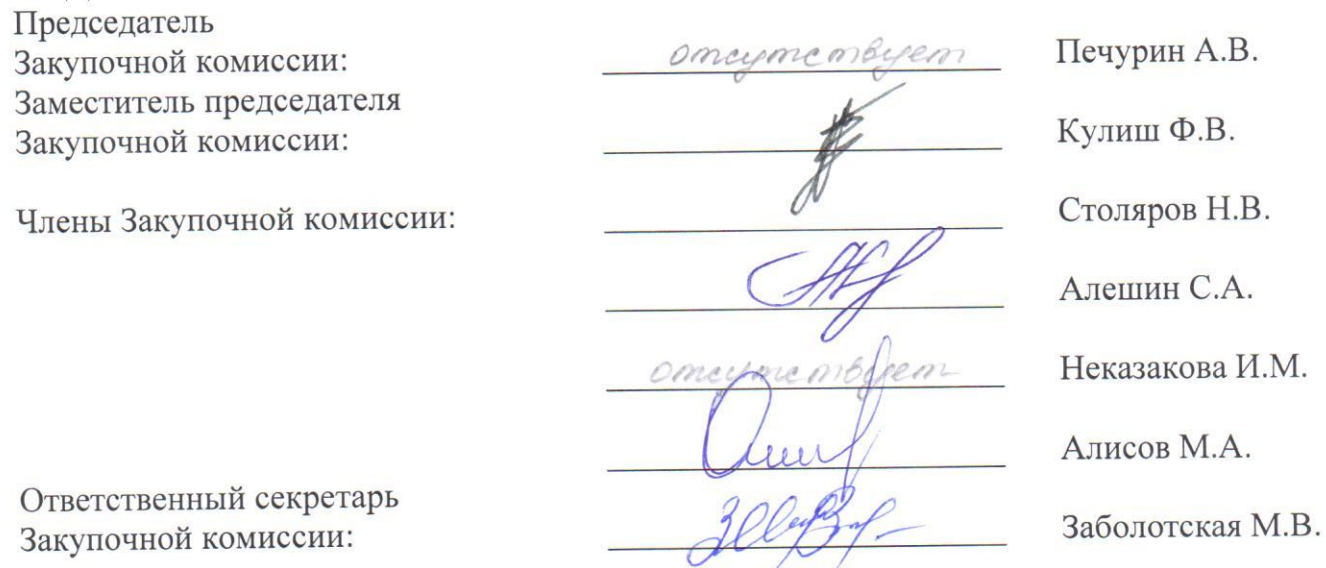 Председатель
Закупочной комиссии: отсутствует Печурин А.В.
Заместитель председателя
Закупочной комиссии: Кулиш Ф.В.
Члены Закупочной комиссии: Столяров Н.В.
Алешин С.А.
отсутствует Неказакова И.М.
Алисов М.А.
Ответственный секретарь
Закупочной комиссии: Заболотская М.В.